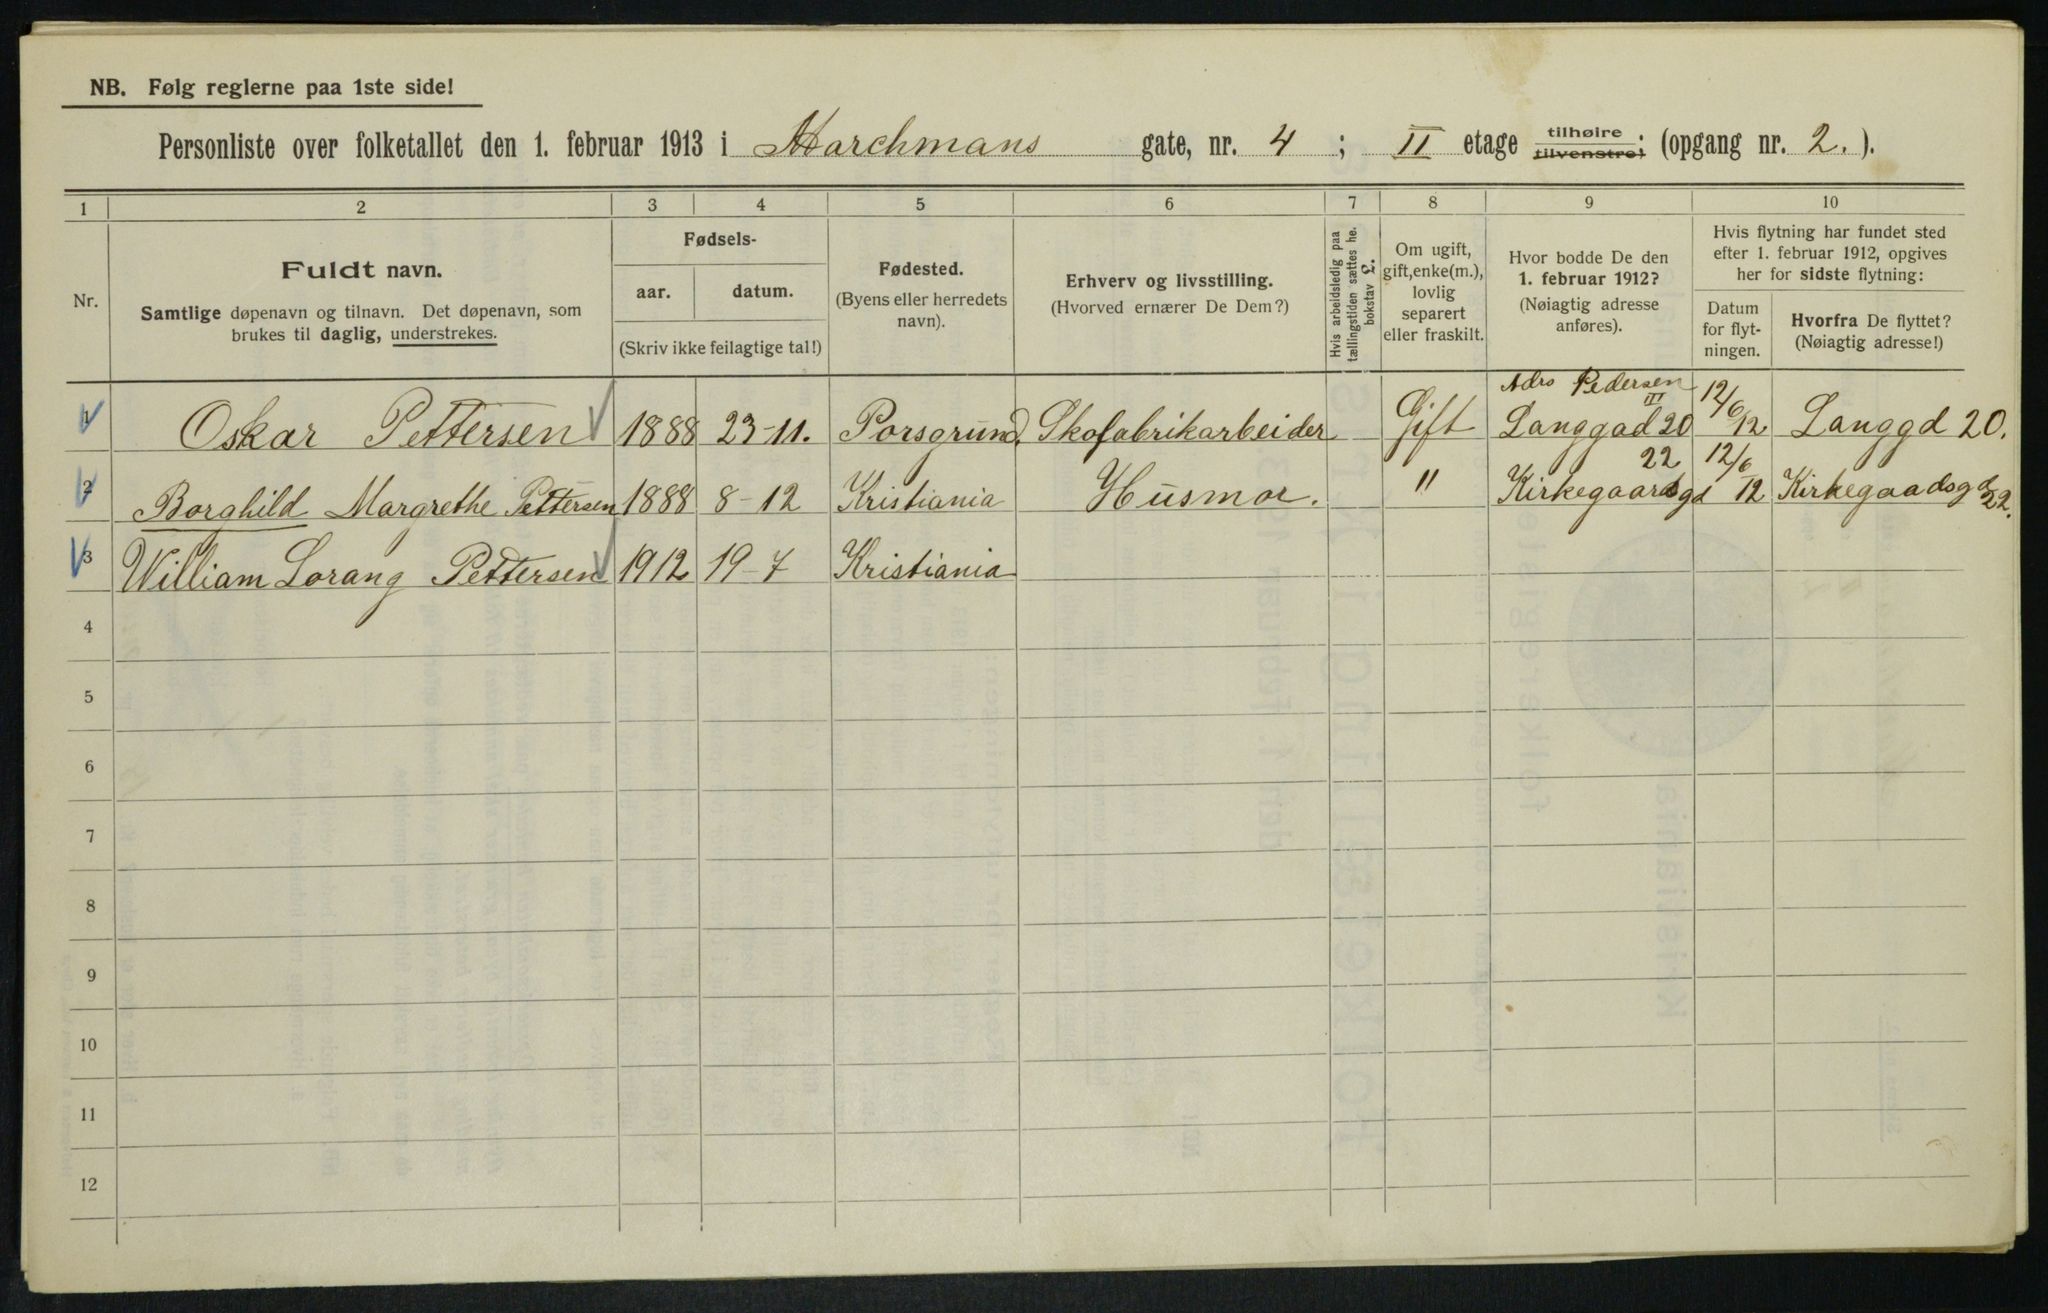 NB. Følg reglerne paa 1ste side!
Personliste over folketallet den 1. februar 1913 i Marchmans gate, nr. 4 ; II etage tilhøire tilvenstre; (opgang nr. 2. ).
1 2 3 4 5 6 7 8 9 10
Nr.
Fuldt navn.
Samtlige døpenavn og tilnavn. Det døpenavn, som
brukes til daglig, understrekes.
Fødsels-
aar. datum.
(Skriv ikke feilagtige tal!)
Fødested.
(Byens eller herredets
navn).
Erhverv og livsstilling.
(Hvorved ernærer De Dem?)
Hvis arbeidsledig paa
tællingstiden sættes he.
bokstav £.
Om ugift,
gift, enke(m.),
lovlig
separert
eller fraskilt.
Hvor bodde De den
1. februar 1912?
(Nøiagtig adresse
anføres).
Hvis flytning har fundet sted
efter 1. februar 1912, opgives
her for sidste flytning:
Datum
for flyt-
ningen.
Hvorfra De flyttet?
(Nøiagtig adresse!)
Adrs Pedersen III
1 Oskar Pettersen 1888 23-11. Porsgrund. Skofabrikarbeider Gift Langgad 20 12/6 12 Langgd 20.
2 Borghild Margrethe Pettersen 1888 8-12 Kristiania Husmor. " Kirkegaardsgd 22 12/6 12 Kirkegaadsgd 22.
3 William Lorang Pettersen 1912 19-7 Kristiania
4
5
6
7
8
9
10
11
12